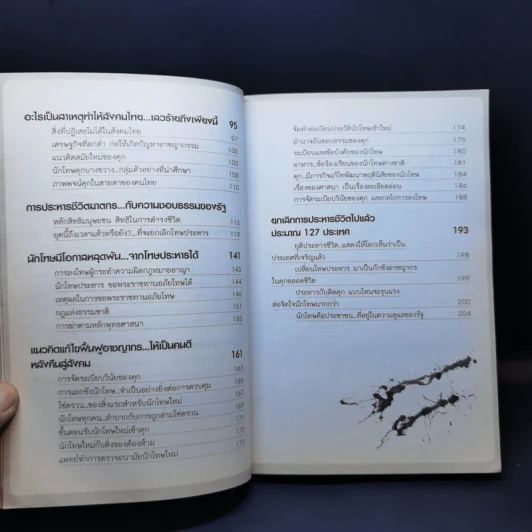 อะไรเป็นสาเหตุทำให้สังคมไทย...เลวร้ายถึงเพียงนี้ 95
สิ่งที่ปฏิเสธไม่ได้ในสังคมไทย 97
เศรษฐกิจที่ตกต่ำ ก่อให้เกิดปัญหาอาชญากรรม 100
แนวคิดสมัยใหม่ของคุก 103
นักโทษคุกบางขวาง...กลุ่มตัวอย่างที่น่าศึกษา 106
ภาพพจน์คุกในสายตาของคนไทย 110
การประหารชีวิตฆาตกร...กับความชอบธรรมของรัฐ 116
หลักสิทธิมนุษยชน สิทธิในการดำรงชีวิต 119
ยุคนี้ถึงเวลาแล้วหรือยัง?...ที่จะยกเลิกโทษประหาร
นักโทษมีโอกาสหลุดพ้น...จากโทษประหารได้ 141
การลงโทษผู้กระทำความผิดกฎหมายอาญา 143
นักโทษประหาร ขอพระราชทานอภัยโทษได้ 145
เหตุผลในการขอพระราชทานอภัยโทษ
กฎแห่งธรรมชาติ 151
การฆ่าตามหลักพุทธศาสนา 153
แนวคิดแก้ไขฟื้นฟูอาชญากร...ให้เป็นคนดี
หลังคืนสู่สังคม 161
การจัดระเบียบวินัยของคุก 163
การแยกขังนักโทษ...จำเป็นอย่างยิ่งต่อการควบคุม
โซ่ตรวน...ของสิ่งแรกสำหรับนักโทษใหม่ 167
นักโทษทุกคน...ลำบากกับการถูกล่ามโซ่ตรวน 169
ขั้นตอนรับนักโทษใหม่เข้าคุก 171
นักโทษใหม่กับสิ่งของต้องห้าม 172
แพทย์ทำการตรวจอนามัยนักโทษใหม่ 173
จัดทำทะเบียนประวัตินักโทษเข้าใหม่ 174
อำนาจอันชอบธรรมของคุก 176
ระเบียบและข้อบังคับของนักโทษ 180
อาหาร..ข้อร้องเรียนของนักโทษต่างชาติ 181
คุก...มีภารกิจแก้ไขพัฒนาพฤตินิสัยของนักโทษ 184
เรื่องของศาสนา เป็นเรื่องละเอียดอ่อน 186
การจัดระเบียบวินัยของคุก และกลไกการลงโทษ 188
ยกเลิกการประหารชีวิตไปแล้ว
ประมาณ 127 ประเทศ 193
ยุติประหารชีวิต...แสดงให้โลกเห็นว่าเป็น
ประเทศที่เจริญแล้ว 198
เปลี่ยนโทษประหาร มาเป็นกักขังอาชญากร
ในคุกตลอดชีวิต 199
ประหารกับติดคุก แบบไหนจะรุนแรง
ต่อจิตใจนักโทษมากกว่า 200
นักโทษคือประชาชน...ที่อยู่ในความดูแลของรัฐ 204